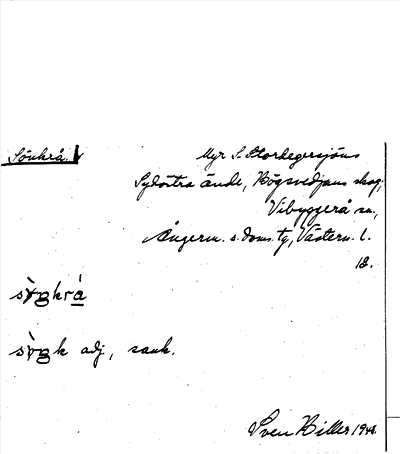 Sönkrå.
Myr S. Storhegersjöns
Sydöstra ände, Högsvedjans skog,
Vibyggerå sn.,
Ångerm. s. doms. tg, Västern. l.
18.
adj., sank.
Sven Hiller 1948.